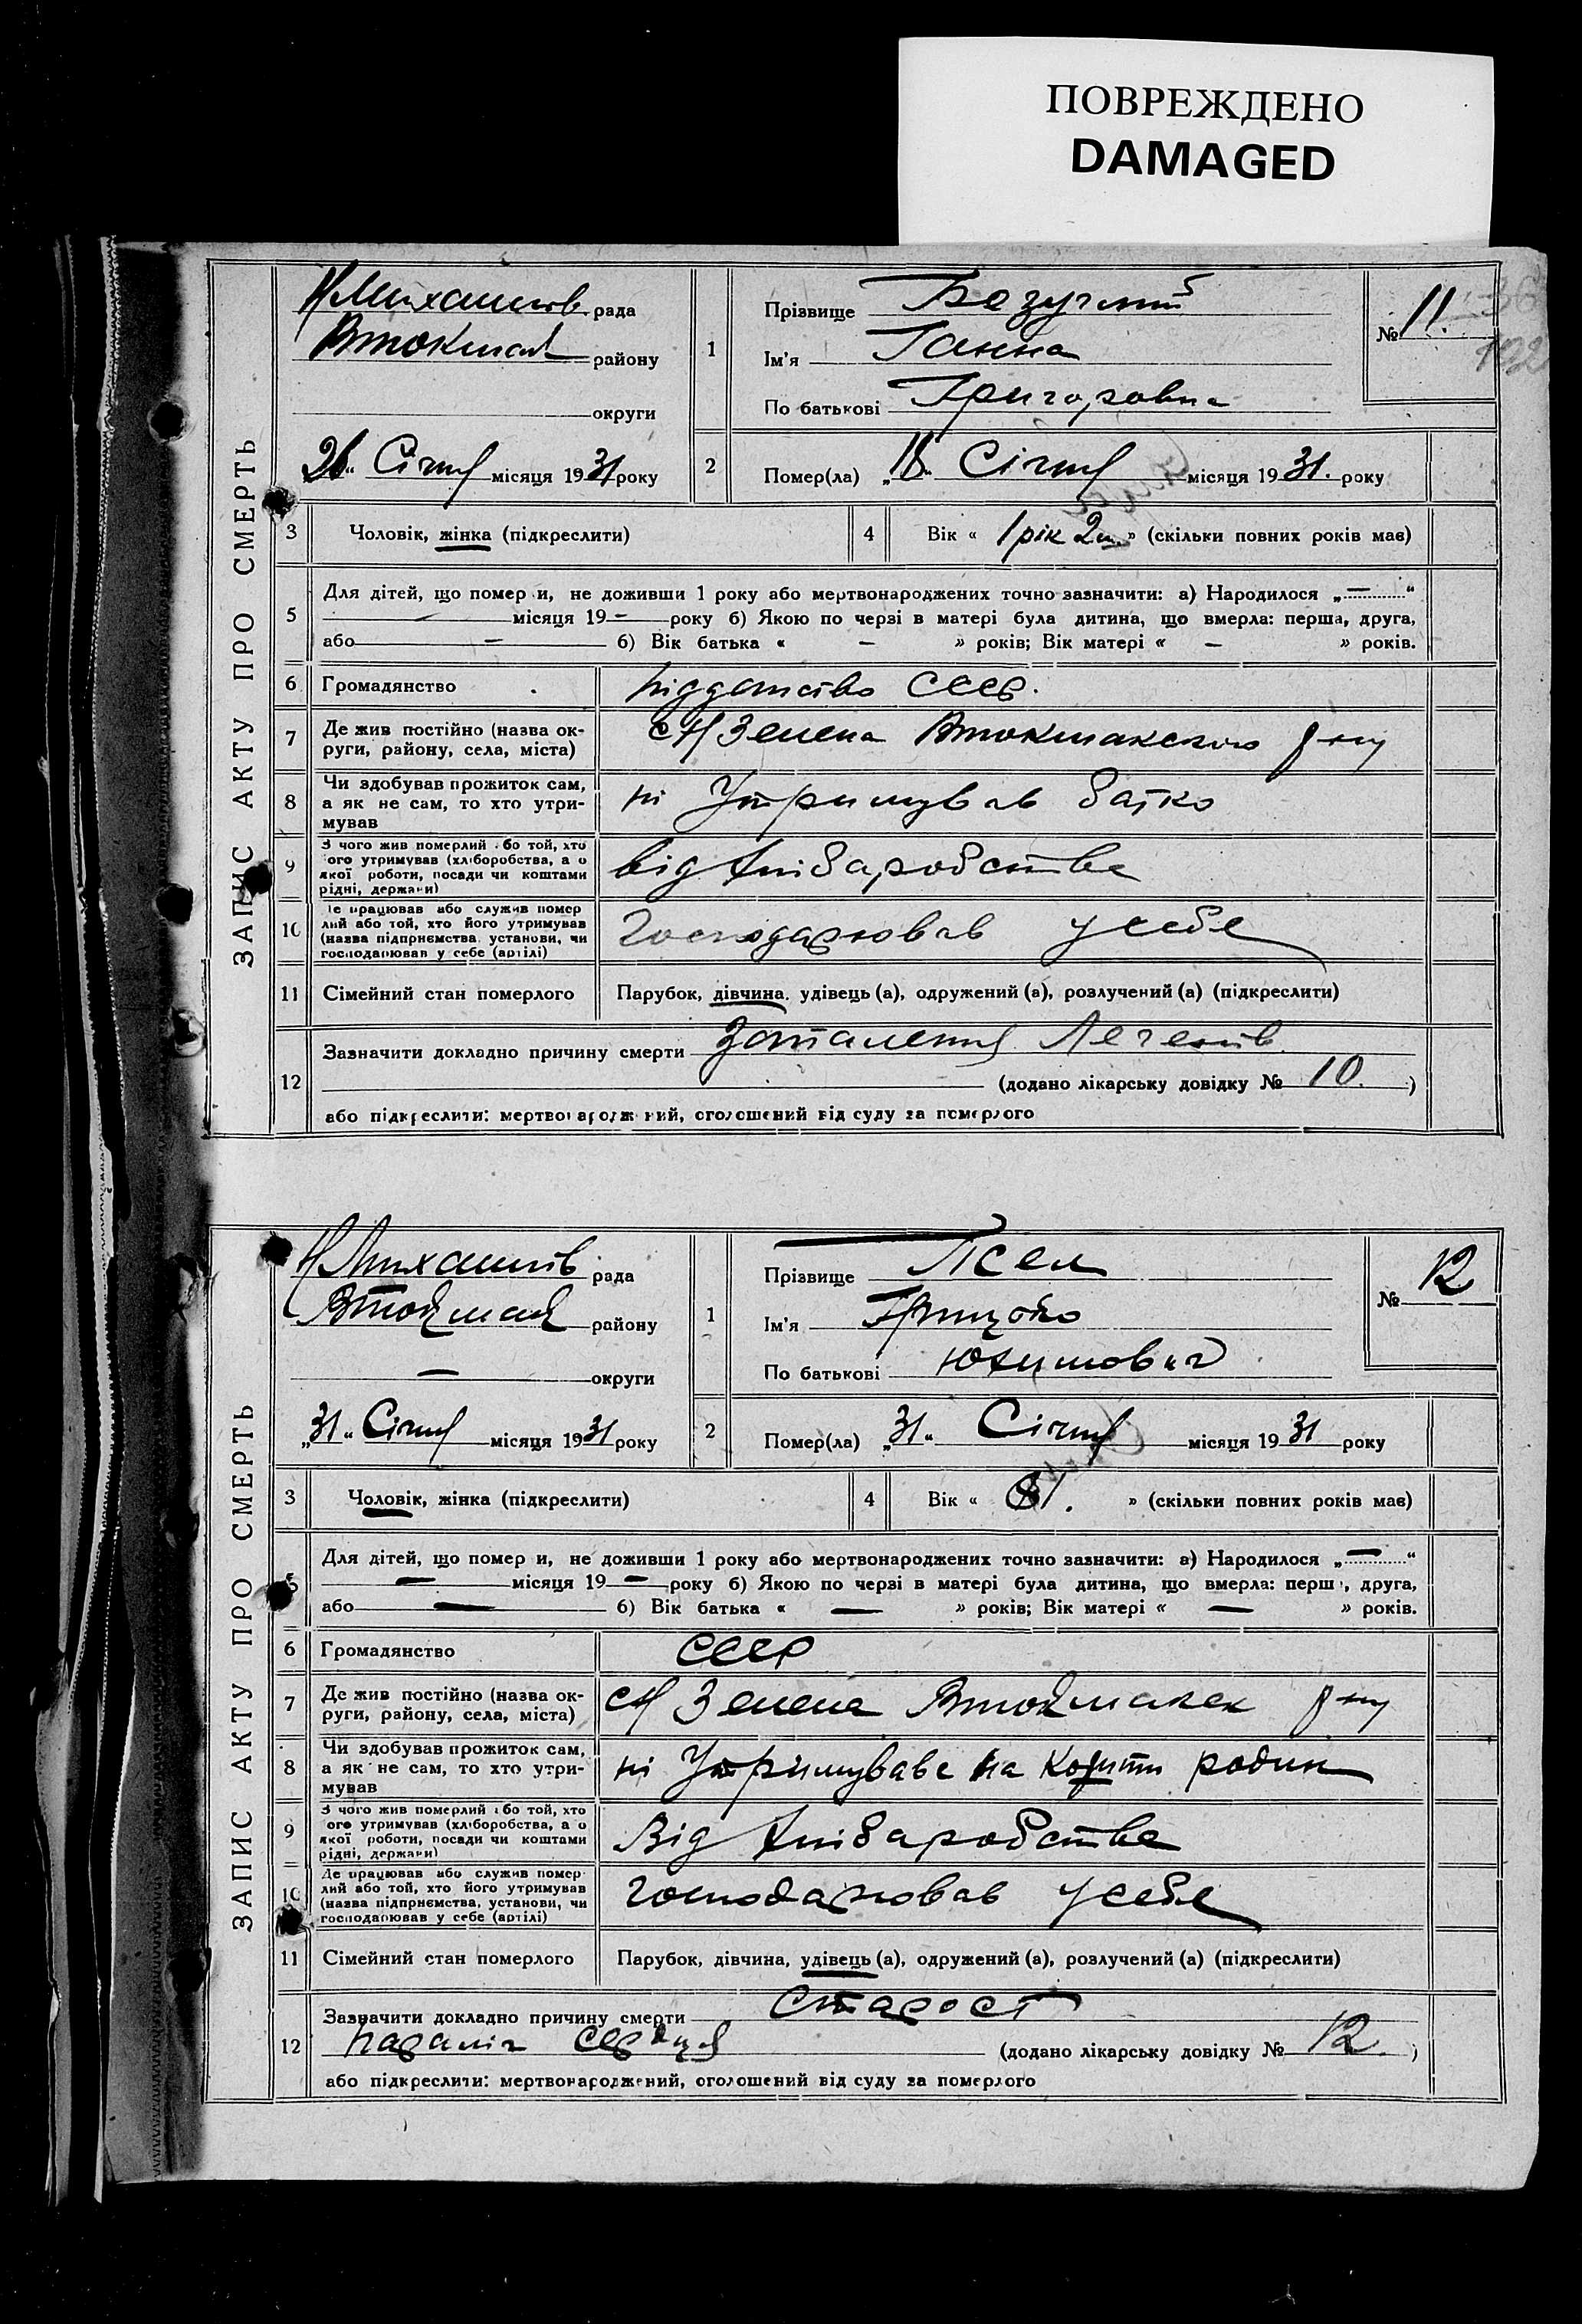 ПОВРЕЖДЕНО
DAMAGED
ЗАПИС АКТУ ПРО СМЕРТЬ
рада
району
округи
Січня місяця 1931 року
1
Прізвище
Ім'я Ганна
По батькові Григоровна
№ 11.
2 Помер(ла) „18“ Січня місяця 1931. року
3 Чоловік, жінка (підкреслити)
4 Вік « 1 рік 2 м. » (скільки повних років має)
5 Для дітей, що помер и, не доживши 1 року або мертвонароджених точно зазначити: а) Народилося „—“
— місяця 19 — року б) Якою по черзі в матері була дитина, що вмерла: перша, друга,
або — б) Вік батька « — » років; Вік матері « — » років.
6 Громадянство підданство СССР.
7 Де жив постійно (назва ок-
руги, району, села, міста) с Н Зелена Втокмакского р-ну
8 Чи здобував прожиток сам,
а як не сам, то хто утри-
мував ні Утримував батко
9 З чого жив померлий або той, хто
ого утримував (хліборобства, а о
якої роботи, посади чи коштами
рідні, держави) від хлібаробства
10 Де працював або служив помер
лий або той, хто його утримував
(назва підприємства, установи, чи
господарював у себе (артілі) Господарював у себе
11 Сімейний стан померлого Парубок, дівчина, удівець (а), одружений (а), розлучений (а) (підкреслити)
12 Зазначити докладно причину смерти Запалення Легенів.
(додано лікарську довідку № 10.)
або підкреслити: мертвонароджений, оголошений від суду за померлого
ЗАПИС АКТУ ПРО СМЕРТЬ
рада
району
— округи
„31“ Січня місяця 1931 року
1
Прізвище Псел
Ім'я Грицько
По батькові Юхимович
№ 12
2 Помер(ла) „31“ Січня місяця 1931 року
3 Чоловік, жінка (підкреслити)
4 Вік « 81. » (скільки повних років має)
5 Для дітей, що помер и, не доживши 1 року або мертвонароджених точно зазначити: а) Народилося „—“
— місяця 19 — року б) Якою по черзі в матері була дитина, що вмерла: перш , друга,
або — б) Вік батька « — » років; Вік матері « — » років.
6 Громадянство СССР
7 Де жив постійно (назва ок-
руги, району, села, міста) с Н Зелена Втокмакск р-ну
8 Чи здобував прожиток сам,
а як не сам, то хто утри-
мував ні на родин
9 З чого жив померлий або той, хто
ого утримував (хліборобства, а о
якої роботи, посади чи коштами
рідні, держави) Від хлібаробства
10 Де працював або служив помер
лий або той, хто його утримував
(назва підприємства, установи, чи
господарював у себе (артілі) Господарював у себе
11 Сімейний стан померлого Парубок, дівчина, удівець (а), одружений (а), розлучений (а) (підкреслити)
12 Зазначити докладно причину смерти Старост
параліч сердця (додано лікарську довідку № 12.)
або підкреслити: мертвонароджений, оголошений від суду за померлого